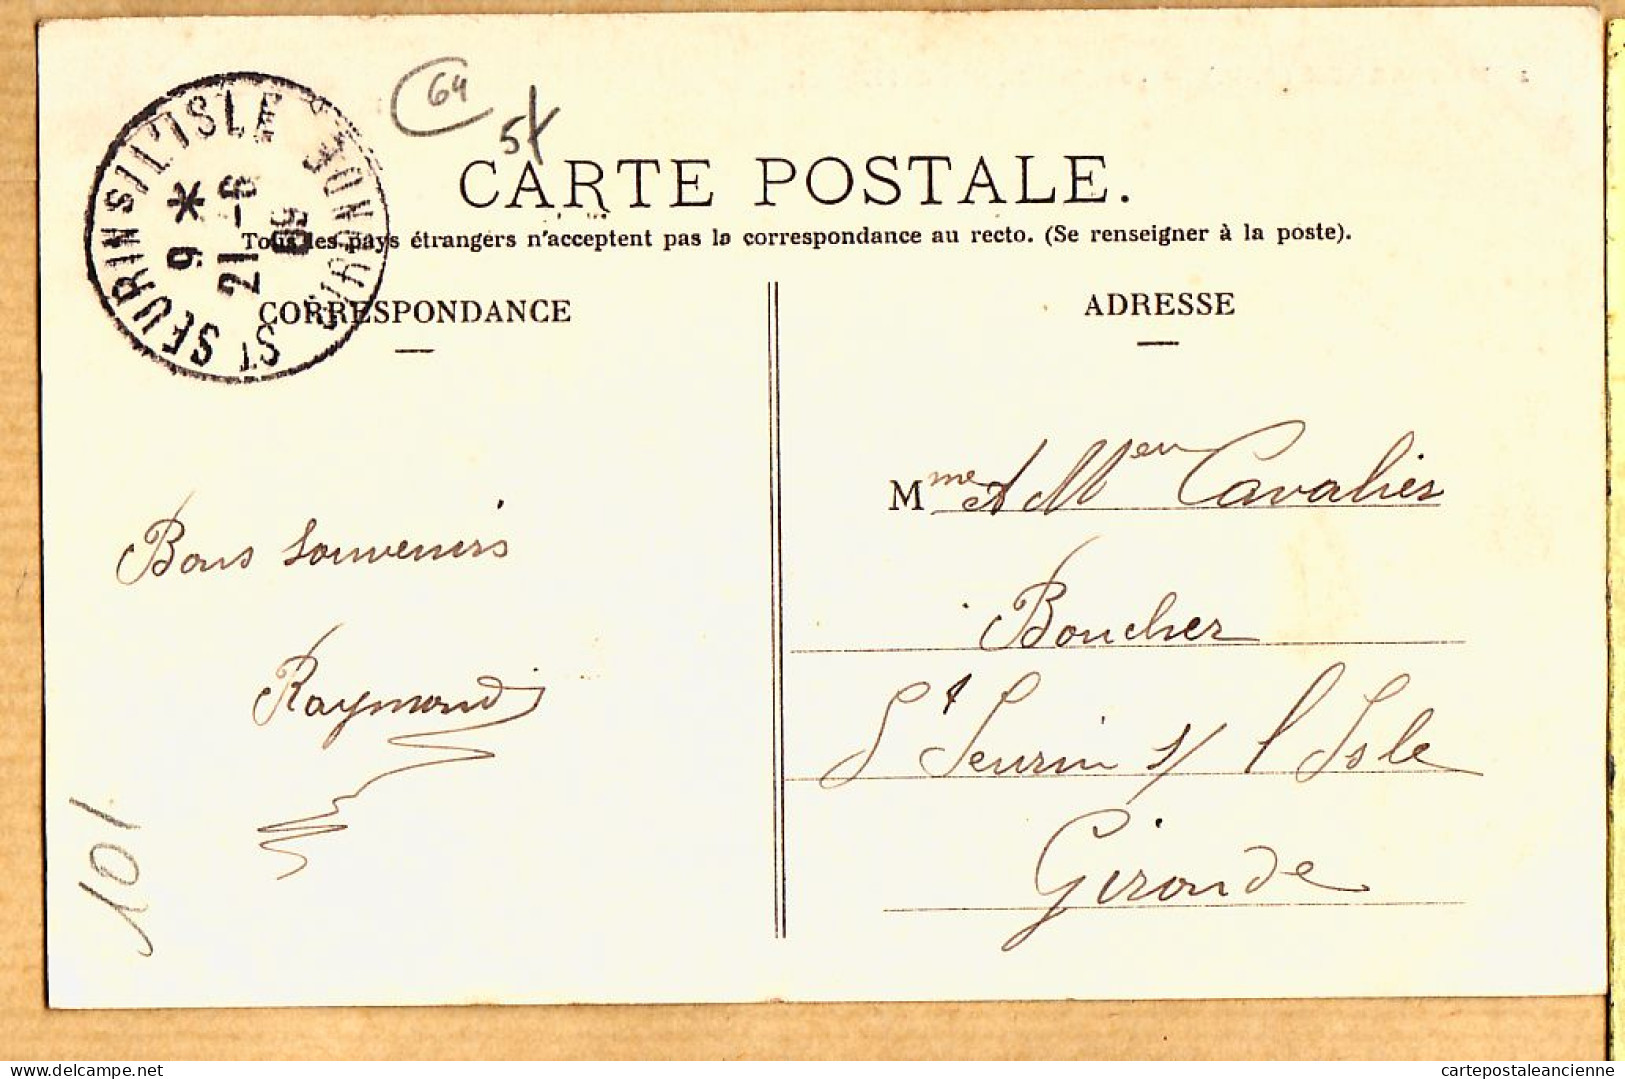 64
5f
CARTE POSTALE.
Tous les pays étrangers n'acceptent pas la correspondance au recto. (Se renseigner à la poste).
ST SEURIN S/L'ISLE GIRONDE
9 *
21-6
09
CORRESPONDANCE
Bons souvenirs
Raymond
101
ADRESSE
Mme et Mr Cavalier
Boucher
St Seurin s/ l'Isle
Gironde
cartepostaleancienne
delcampe.net